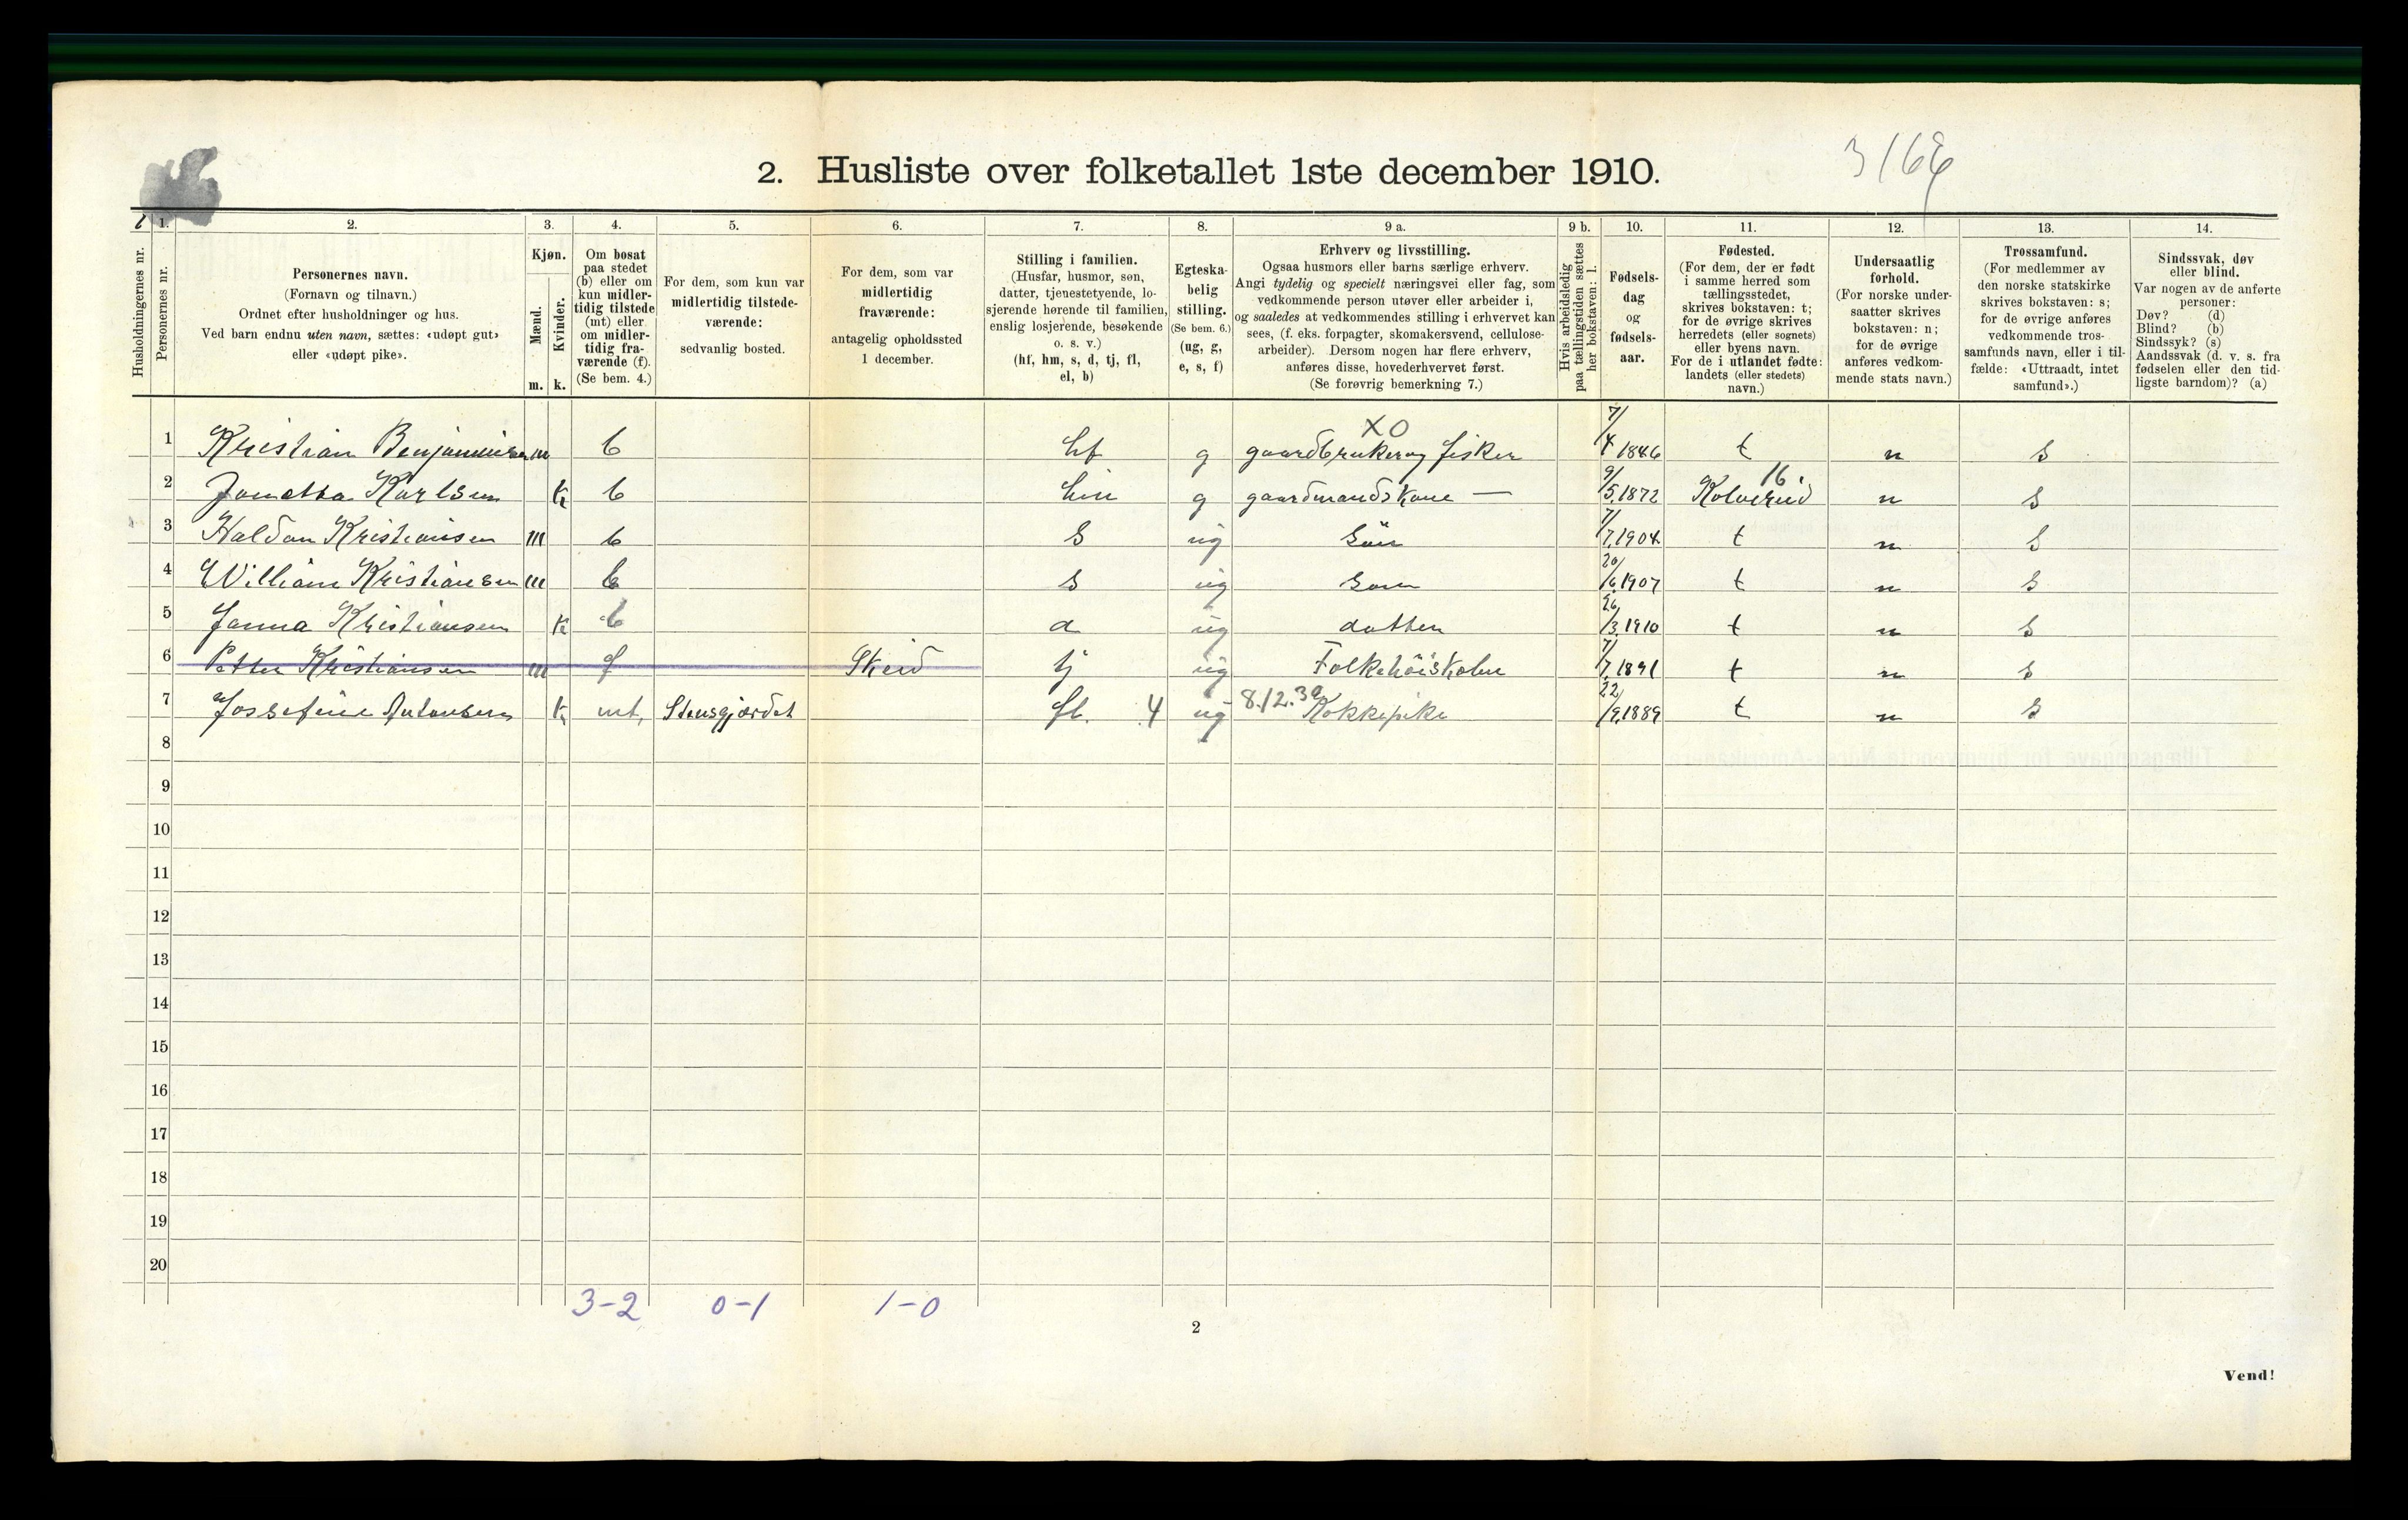 2. Husliste over folketallet 1ste december 1910.
3166
1. 2. 3. 4. 5. 6. 7. 8. 9 a. 9 b. 10. 11. 12. 13. 14.
Husholdningernes nr.
Personernes nr.
Personernes navn.
(Fornavn og tilnavn.)
Ordnet efter husholdninger og hus.
Ved barn endnu uten navn, sættes: «udøpt gut»
eller «udøpt pike».
Kjøn.
Mænd.
Kvinder.
m. k.
Om bosat
paa stedet
(b) eller om
kun midler-
tidig tilstede
(mt) eller
om midler-
tidig fra-
værende (f).
(Se bem. 4.)
For dem, som kun var
midlertidig tilstede-
værende:
sedvanlig bosted.
For dem, som var
midlertidig
fraværende:
antagelig opholdssted
1 december.
Stilling i familien.
(Husfar, husmor, søn,
datter, tjenestetyende, lo-
sjerende hørende til familien,
enslig losjerende, besøkende
o. s. v.)
(hf, hm, s, d, tj, fl,
el, b)
Egteska-
belig
stilling.
(Se bem. 6.)
(ug, g,
e, s, f)
Erhverv og livsstilling.
Ogsaa husmors eller barns særlige erhverv.
Angi tydelig og specielt næringsvei eller fag, som
vedkommende person utøver eller arbeider i,
og saaledes at vedkommendes stilling i erhvervet kan
sees, (f. eks. forpagter, skomakersvend, cellulose-
arbeider). Dersom nogen har flere erhverv,
anføres disse, hovederhvervet først.
(Se forøvrig bemerkning 7.)
Hvis arbeidsledig
paa tællingstiden sættes
her bokstaven: l.
Fødsels-
dag
og
fødsels-
aar.
Fødested.
(For dem, der er født
i samme herred som
tællingsstedet,
skrives bokstaven: t;
for de øvrige skrives
herredets (eller sognets)
eller byens navn.
For de i utlandet fødte:
landets (eller stedets)
navn.)
Undersaatlig
forhold.
(For norske under-
saatter skrives
bokstaven: n;
for de øvrige
anføres vedkom-
mende stats navn.)
Trossamfund.
(For medlemmer av
den norske statskirke
skrives bokstaven: s;
for de øvrige anføres
vedkommende tros-
samfunds navn, eller i til-
fælde: «Uttraadt, intet
samfund».)
Sindssvak, døv
eller blind.
Var nogen av de anførte
personer:
Døv? (d)
Blind? (b)
Sindssyk? (s)
Aandssvak (d. v. s. fra
fødselen eller den tid-
ligste barndom)? (a)
XO
1 Kristian Benjaminsen m b hf g gaardbruker og fisker 7/4 1846 t n s
16
2 Jonetta Karlsen k b hm g gaardmandskone — 9/5 1872 Kolvereid n s
3 Haldan Kristiansen m b s ug Sön 7/7 1904 t n s
4 William Kristiansen m b s ug Sön 20/6 1907 t n s
5 Janna Kristiansen k b d ug datter 26/3 1910 t n s
6 Petter Kristiansen m f Skeid tj ug Folkehöiskolen 7/7 1891 t n s
7 Jossefine Antonsen k mt Stensgjærdet fl. 4 ug 8.12.39 Kokkepike 22/9 1889 t n s
8
9
10
11
12
13
14
15
16
17
18
19
20
3-2 0-1 1-0
2
Vend!